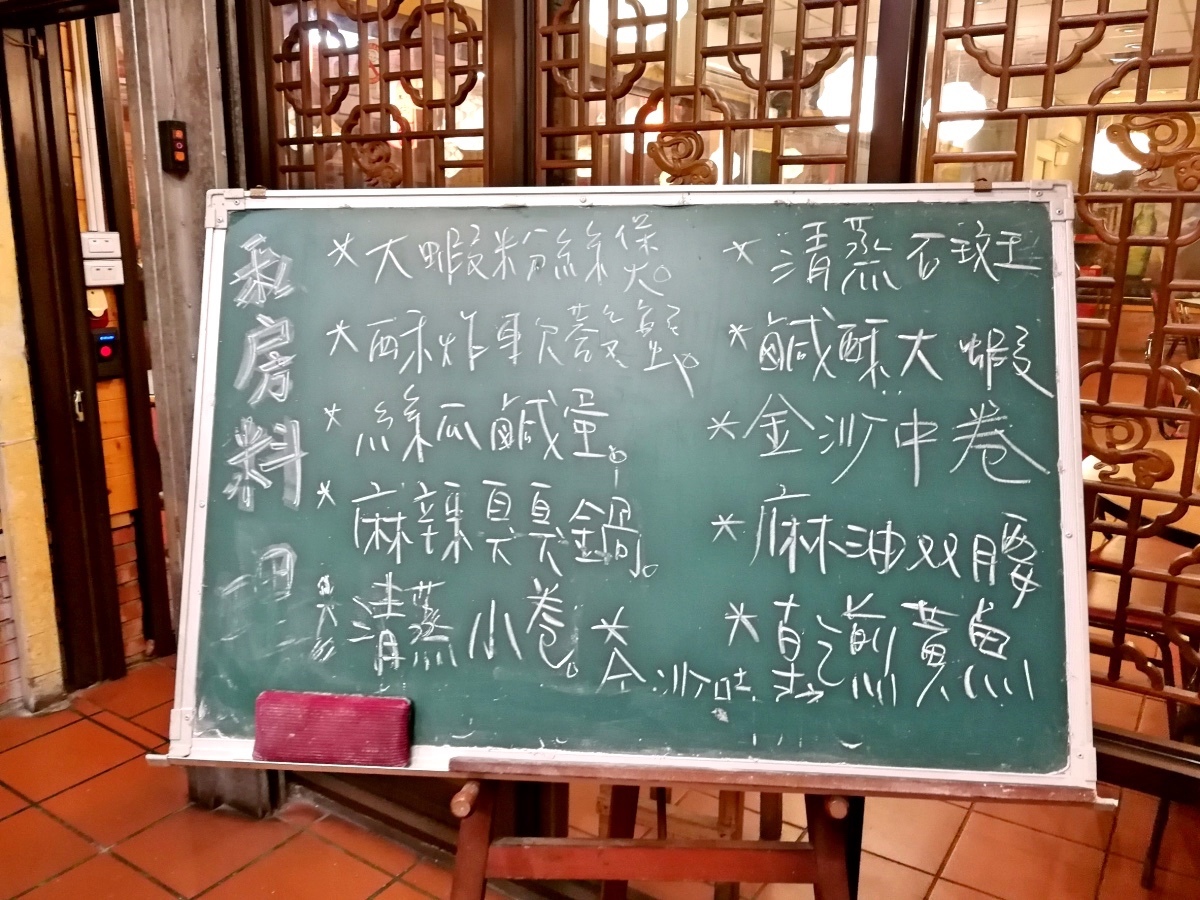 私房料理
*大蝦粉絲煲。
*酥炸軟
*絲瓜鹹蛋。
*麻辣臭臭鍋。
*清蒸小卷。
*金沙
*清蒸石斑
*鹹酥大蝦
*金沙中卷
*麻油双腰
*乾煎黃魚